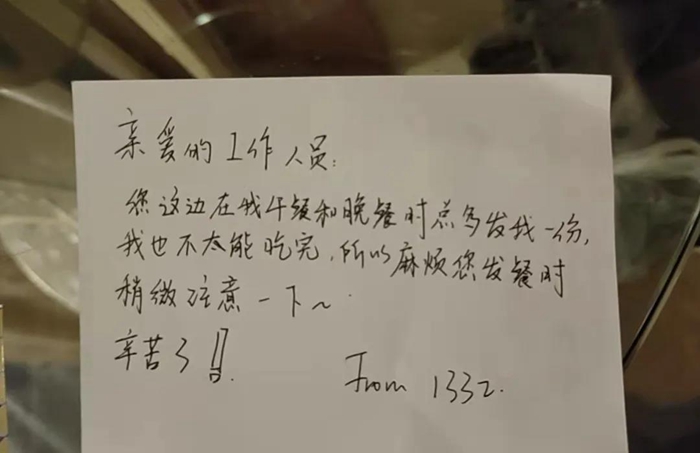 亲爱的工作人员:
您这边在我午餐和晚餐时总多发我一份,
我也不太能吃完,所以麻烦您发餐时
稍微注意一下~.
辛苦了!!
From 1332.